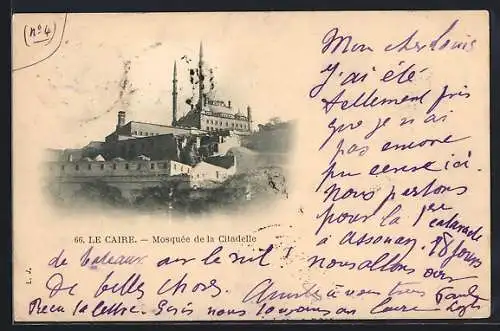 (No 4)
Mon cher Louis
J'ai été
tellement pris
que je n'ai
pas encore
pu écrire ici.
Nous partons
pour la 1re cataracte
à Assouan. 18 jours
66. LE CAIRE. — Mosquée de la Citadelle
L. J.
de bateau sur le nil. Nous allons voir
de belles choses. Amitiés à vous tous
Reçu la lettre nous au Caire